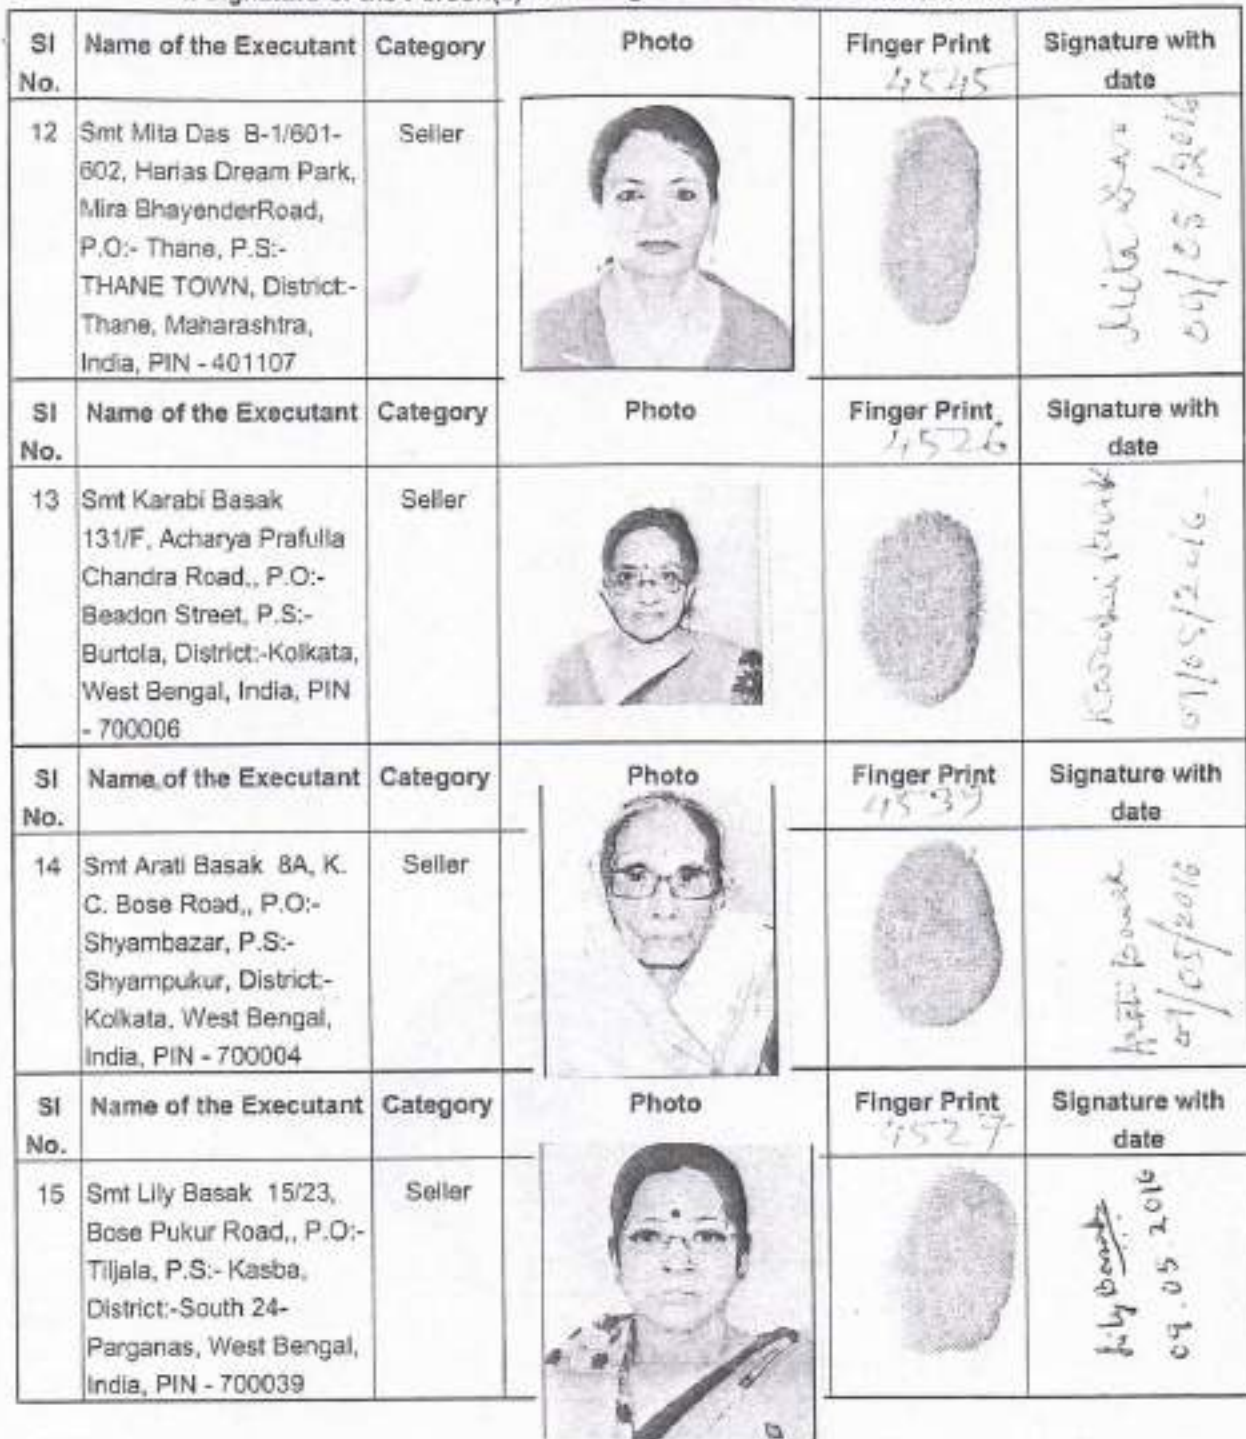 Signature of the Person(s)
SI No. Name of the Executant Category Photo Finger Print Signature with date
4545
12 Smt Mita Das B-1/601-
602, Harias Dream Park,
Mira BhayenderRoad,
P.O:- Thane, P.S:-
THANE TOWN, District:-
Thane, Maharashtra,
India, PIN - 401107
Seller
Mita Das
09/05/2016
SI No. Name of the Executant Category Photo Finger Print Signature with date
4526
13 Smt Karabi Basak
131/F, Acharya Prafulla
Chandra Road,, P.O:-
Beadon Street, P.S:-
Burtola, District:-Kolkata,
West Bengal, India, PIN
- 700006
Seller
09/05/2016
SI No. Name of the Executant Category Photo Finger Print Signature with date
14 Smt Arati Basak 8A, K.
C. Bose Road,, P.O:-
Shyambazar, P.S:-
Shyampukur, District:-
Kolkata, West Bengal,
India, PIN - 700004
Seller
09/05/2016
SI No. Name of the Executant Category Photo Finger Print Signature with date
4527
15 Smt Lily Basak 15/23,
Bose Pukur Road,, P.O:-
Tiljala, P.S:- Kasba,
District:-South 24-
Parganas, West Bengal,
India, PIN - 700039
Seller
Lily Basak
09.05 2016